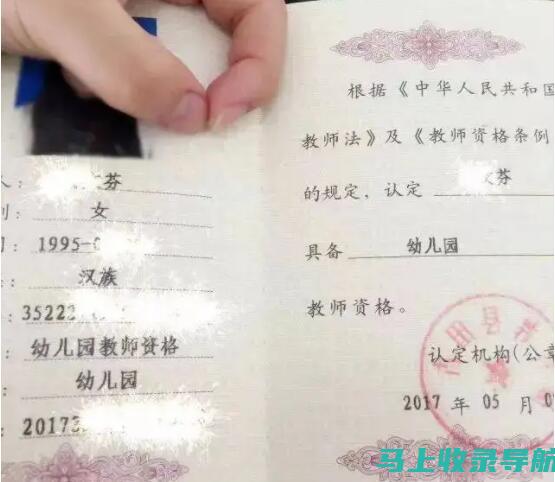 人
芬
别
女
1995-0
汉族
35222
幼儿园教师资格
幼儿园
20173
根据《中华人民共和国
教师法》及《教师资格条例
的规定，认定
芬
具备
幼儿园
教师资格。
田县
认定机构(公章
2017 年 05 月 0
马上收录导航